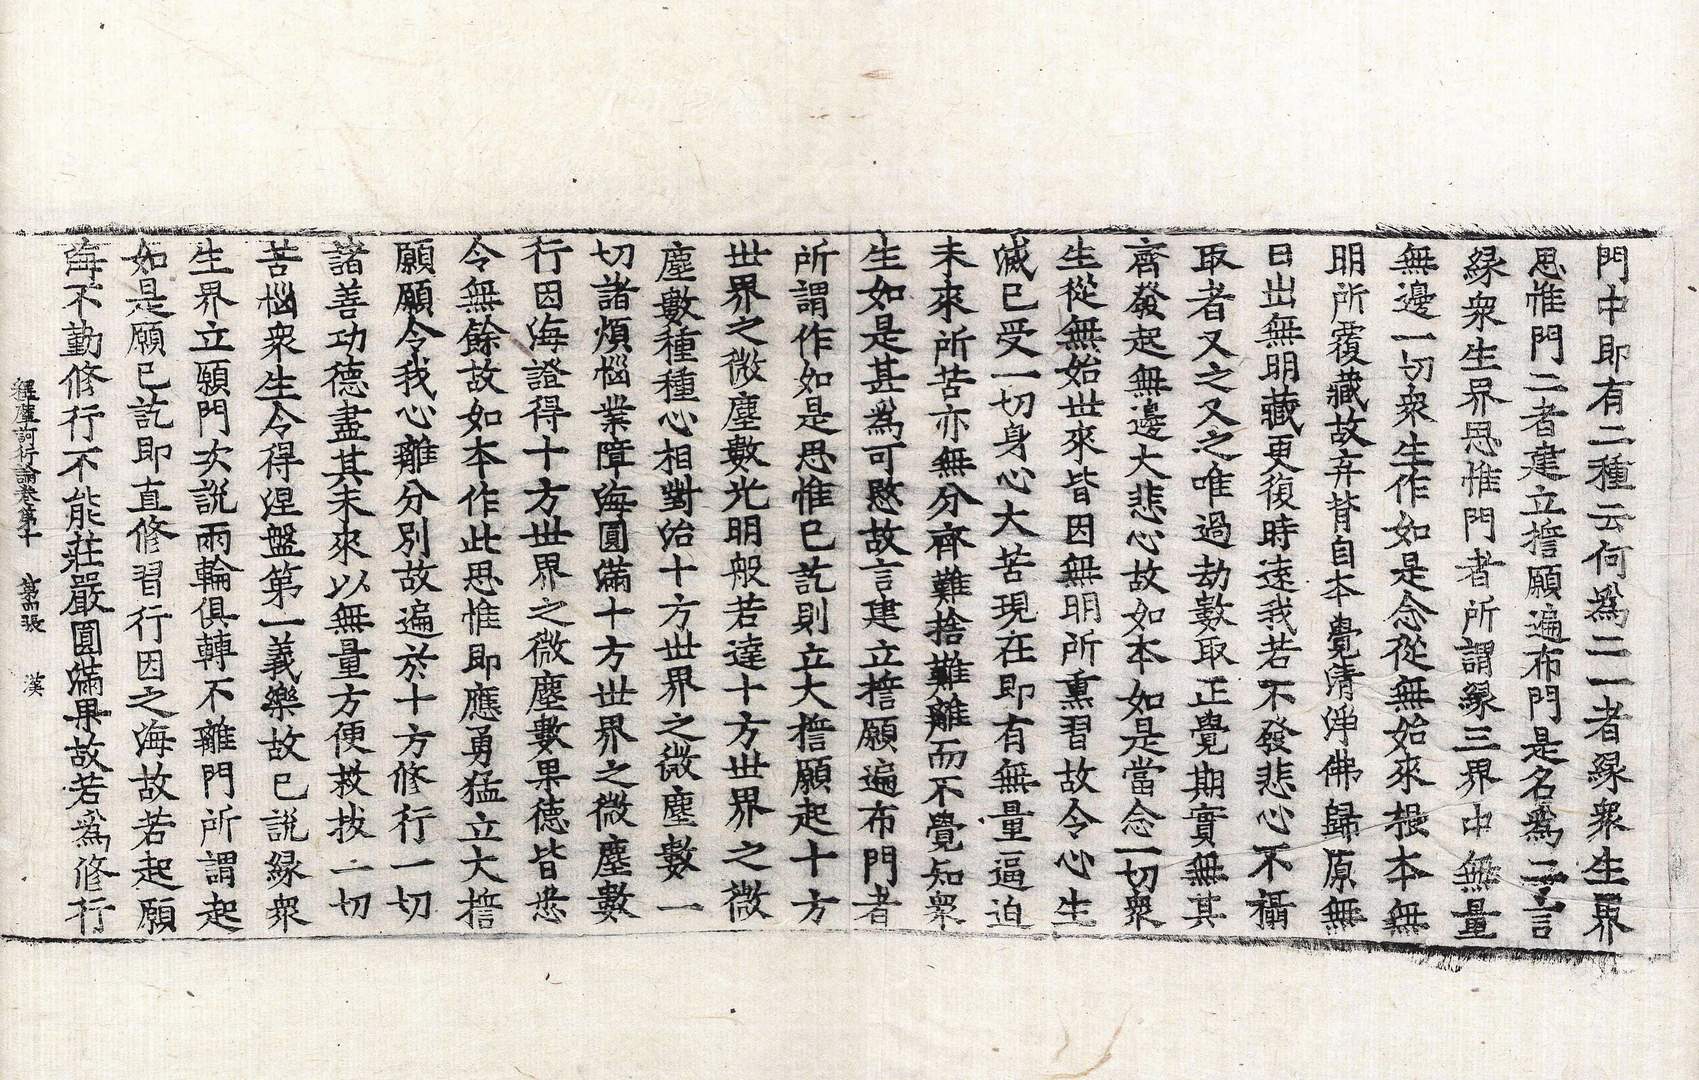 門中即有二種云何爲二一者緣衆生界
思惟門二者建立誓願遍布門是名爲二言
緣衆生界思惟門者所謂緣三界中無量
無邊一切衆生作如是念從無始來根本無
明所覆藏故弃背自本覺清淨佛歸原無
日出無明藏更復時遠我若不發悲心不攝
取者又之又之唯過劫數取正覺期實無其
齊發起無邊大悲心故如本如是當念一切衆
生從無始世來皆因無明所熏習故令心生
滅已受一切身心大苦現在即有無量逼迫
未來所苦亦無分齊難捨難離而不覺知衆
生如是甚爲可愍故言建立誓願遍布門者
所謂作如是思惟已訖則立大誓願起十方
世界之微塵數光明般若達十方世界之微
塵數種種心相對治十方世界之微塵數一
切諸煩惱業障海圓滿十方世界之微塵數
行因海證得十方世界之微塵數果德皆悉
令無餘故如本作此思惟即應勇猛立大誓
願願令我心離分別故遍於十方修行一切
諸善功德盡其未來以無量方便救拔一切
苦惱衆生令得涅盤第一義樂故已說緣衆
生界立願門次說兩輪俱轉不離門所謂起
如是願已訖即直修習行因之海故若起願
海不勤修行不能莊嚴圓滿果故若爲修行
釋摩訶衍論卷第十 第四張 漢